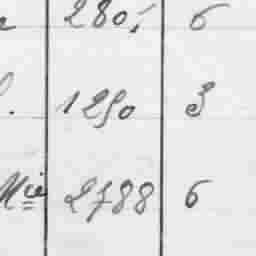 280, 6
1250 3
Mie 2788 6